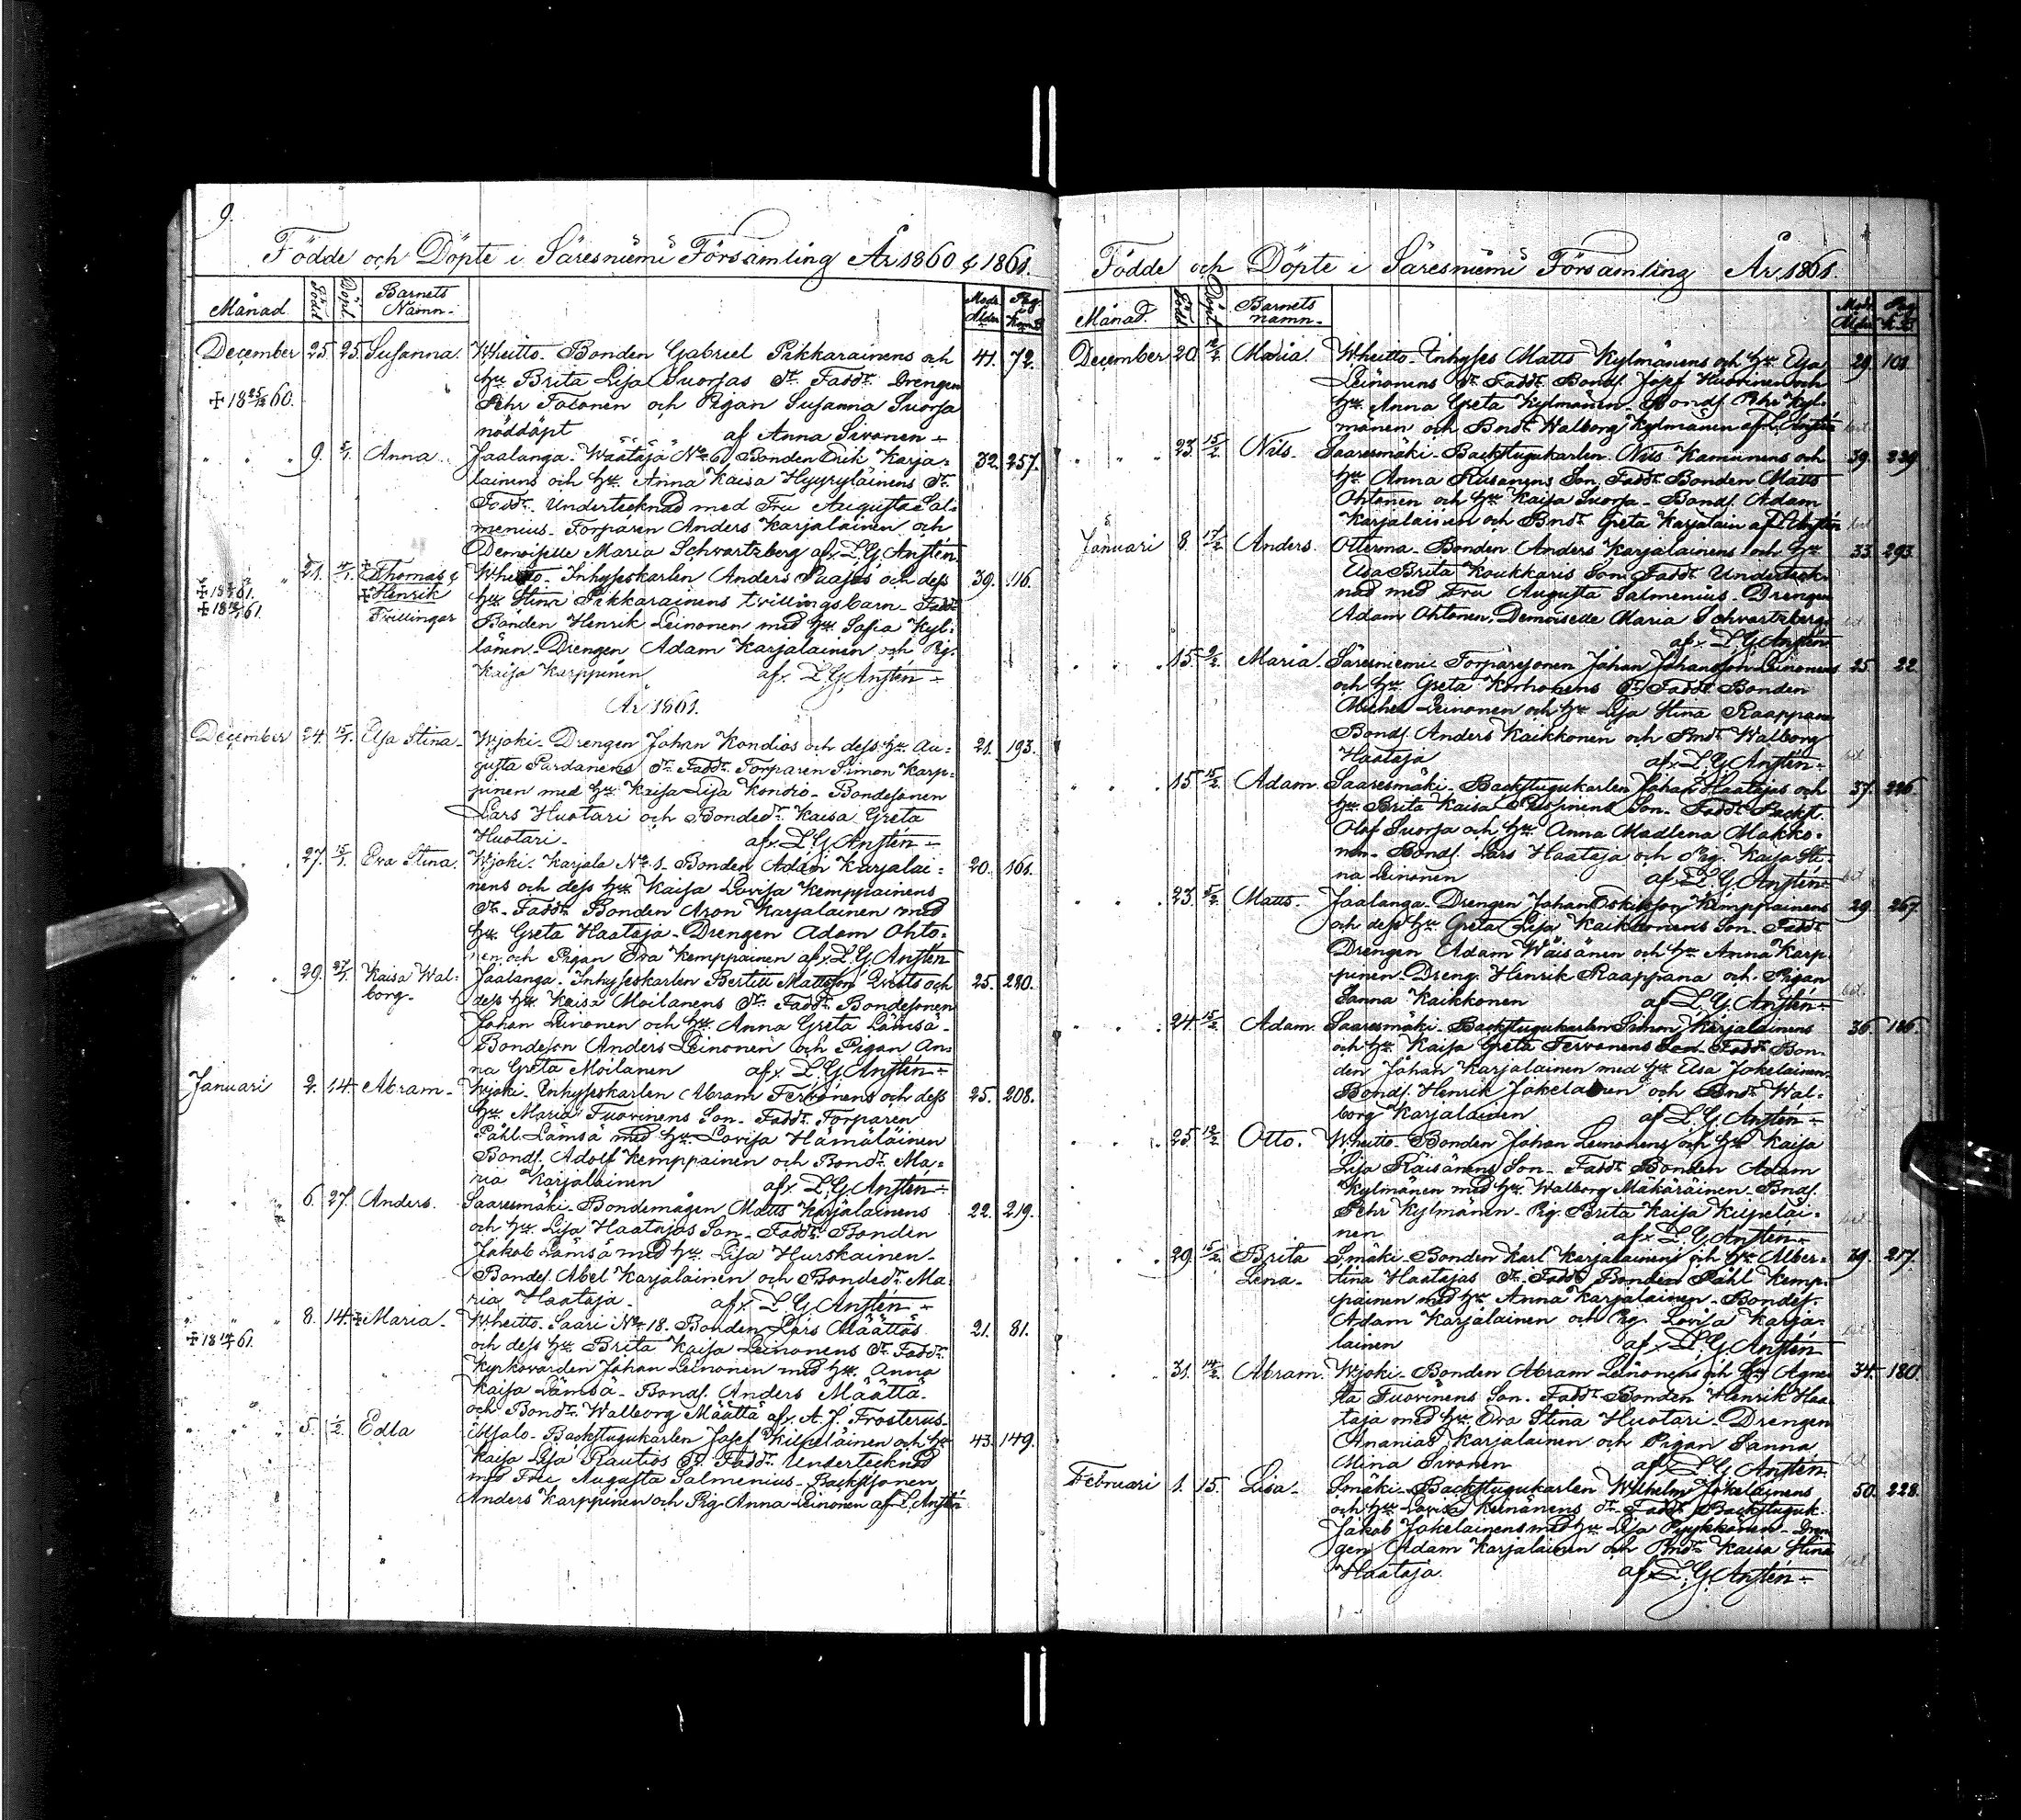 9.
Födde och Döpte i Säresniemi Församling År 1860 & 1861.
Månad Född Döpt Barnets Namn Modr. Ålder Pag. i Komb.
December 25. 25. Susanna. Wheitto. Bonden Gabriel Pikkarainens och 41. 72.
hu Brita Lisa Suorsas Dr. Faddr. Drengen
+ 18 25/12 60. Pehr Tolonen och Pigan Susanna Suorsa
nöddöpt af Anna Sivonen
" " 9. 5/1. Anna. Jaalanga. Wäätäjä No 6. Bonden Erik Karja- 32. 257.
lainens och hu. Anna Kaisa Hyyryläinens Dr.
Faddr. Undertecknad med Fru Augusta Sal-
menius. Torparen Anders Karjalainen och
Demoiselle Maria Schvartzberg af L. G. Anstén.
" 21. Thomas & Wheitto. Inhyseskarlen Anders Paajas och dess 39. 116.
+ Henrik hu Stina Pikkarainens tvillingsbarn. Faddr
Tvillingar Bonden Henrik Leinonen med hu Sofia Kyl-
länen. Drengen Adam Karjalainen och Pig.
Kaisa Karppinen af L. G. Anstén
År 1861.
December 24. 15/1. Elsa Stina. Wjoki. Drengen Johan Kondios och dess hu. Au- 21. 193.
gusta Pardanens Dr. Faddr. Torparen Simon Karp-
pinen med hu. Kaisa Lisa Kondio. Bondesonen
Lars Huotari och Bonded:r Kaisa Greta
Huotari. af L. G. Anstén
" " 27. 15/1. Eva Stina. Wjoki. Karjala No 1. Bonden Adam Karjalai- 20. 161.
nens och dess hu Kaisa Lovisa Kemppainens
Dr. Faddr. Bonden Aron Karjalainen med
hu. Greta Haataja. Drengen Adam Ohto-
nen och Pigan Eva Kemppainen af L. G. Anstén
" " 29. 27/1. Kaisa Wal- Jaalanga. Inhyseskarlen Bertill Mattsson Qvists och 25. 280.
borg. dess hu. Kaisa Moilanens Dr. Faddr. Bondesonen
Johan Leinonen och hu. Anna Greta Lämsä.
Bondeson Anders Leinonen och Pigan An-
na Greta Moilanen af L. G. Anstén
Januari 2. 14. Abram. Wjoki. Inhyseskarlen Abram Tervonens och dess 25. 208.
hu. Maria Tuovinens Son. Faddr. Torparen
Påhl Lämsä med hu. Lovisa Hämäläinen
Bonds. Adolf Kemppainen och Bondr. Ma-
ria Karjalainen af L. G. Anstén
" " 6. 27. Anders. Saaresmäki. Bondemågen Matts Karjalainens 22. 219.
och hu. Lisa Haatajas Son. Faddr. Bonden
Jakob Lämsä med hu. Lisa Hurskainen.
Bondes. Abel Karjalainen och Bondedr. Ma-
ria Haataja. af L. G. Anstén
8. 14. + Maria. Wheitto. Saari No 18. Bonden Lars Määttäs 21. 81.
och dess hu. Brita Kaisa Leinonens Dr. Faddr.
Kyrkovärden Johan Leinonen med hu. Anna
Kaisa Lämsä. Bonds. Anders Määttä
och Bondr. Walborg Määttä af A. J. Frosterus.
" " 5. 1/2. Edla Backstugukarlen Josef Kilpeläinen och hu 43. 149.
Kaisa Lisa Rautios Dr. Faddr. Undertecknad
med Fru Augusta Salmenius. Backstsonen
Anders Karppinen och Pig. Anna Leinonen af L. Anstén
Födde och Döpte i Säresniemi Församling År 1861.
Månad Född Döpt Barnets namn Modr Ålder Pag. K. B.
December 20. Maria. Wheitto. Inhyses Matts Kylmänens och hu Elsa 29. 101.
Leinonens Dr. Faddr. Bonds. Josef Huovinen och
hu. Anna Greta Kylmänen. Bonds. Pehr Kyl-
mänen och Bondr. Walborg Kylmänen af L. Anstén
" " 23. 15/2. Nils. Saaresmäki. Backstugukarlen Nils Kamunens och 39. 239
hu Anna Rusanens Son. Faddr. Bonden Matts
Ohtonen och hu Kaisa Suorsa. Bonds. Adam
Karjalainen och Bndr. Greta Karjalain af L. Anstén
Januari 8. 17/2 Anders. Otterma. Bonden Anders Karjalainens och hu 33. 293.
Elsa Brita Koukkaris Son. Faddr. Underteck-
nad med Fru Augusta Salmenius. Drengen
Adam Ohtonen. Demoiselle Maria Schvartzberg
af L. G. Anstén
" " 15. Maria. Säresniemi. Torparesonen Johan Johansson Leinonens 25. 22
och hu. Greta Korhonens Dr. Faddr. Bonden
Michel Leinonen och hu Lisa Stina Raappana
Bonds. Anders Kaikkonen och Bndr. Walborg
Haataja af L. G. Anstén
" " 15. 15/2 Adam. Saaresmäki. Backstugukarlen Johan Haatajas och 37. 226
hu. Brita Kaisa Son. Faddr. Backst.
Olof Suorsa och hu. Anna Madlena Makko-
nen. Bonds. Lars Haataja och Pig. Kaisa Sti-
na Leinonen af L. G. Anstén
" " 23. Matts. Jaalanga. Drengen Johan Eskilsson Kemppainens 29. 267.
och dess hu. Greta Lisa Kaikkonens Son. Faddr.
Drengen Adam Wäisänen och hu. Anna Karp-
pinen. Dreng. Henrik Raappana och Pigan
Sanna Kaikkonen af L. G. Anstén
" " 24. 15/2 Adam. Saaresmäki. Backstugukarlen Simon Karjalainens 36. 186.
och hu. Kaisa Greta Tervonens Son. Faddr. Bon-
den Johan Karjalainen med hu Elsa Jokelainen.
Bonds. Henrik Jokelainen och Bndr. Wal-
borg Karjalainen af L. G. Anstén
" " 25. Otto. Wheitto. Bonden Johan Leinonens och hu Kaisa
Lisa Räisänens Son. Faddr. Bonden Adam
Kylmänen med hu. Walborg Mäkäräinen. Bnds.
Pehr Kylmänen. Pig. Brita Kaisa Kilpeläi-
nen af L. G. Anstén
" " 29. 15/2 Brita Smäki. Bonden Karl Karjalainens och hu Alber- 39. 217.
Lena. tina Haatajas Dr. Faddr. Bonden Påhl Kemp-
painen med hu Anna Karjalainen. Bondes.
Adam Karjalainen och Pig. Lovisa Karja-
lainen af L. G. Anstén
" " 31. 14/2. Abram. Wjoki. Bonden Abram Leinonens och hu Agne- 34. 180.
ta Tuovinens Son. Faddr. Bonden Henrik Haa-
taja med hu. Eva Stina Huotari. Drengen
Ananias Karjalainen och Pigan Sanna
Mina Sivonen af L. G. Anstén.
Februari 1. 15. Lisa. Smäki. Backstugukarlen Wilhelm Jokelainens 50. 228.
och hu Lovisa Keinänens Dr. Faddr. Backstuguk.
Jakob Jokelainens med hu Lisa Pyykkönen. Dren-
gen Adam Karjalainen och Bndr. Kaisa Stina
Haataja. af L. G. Anstén